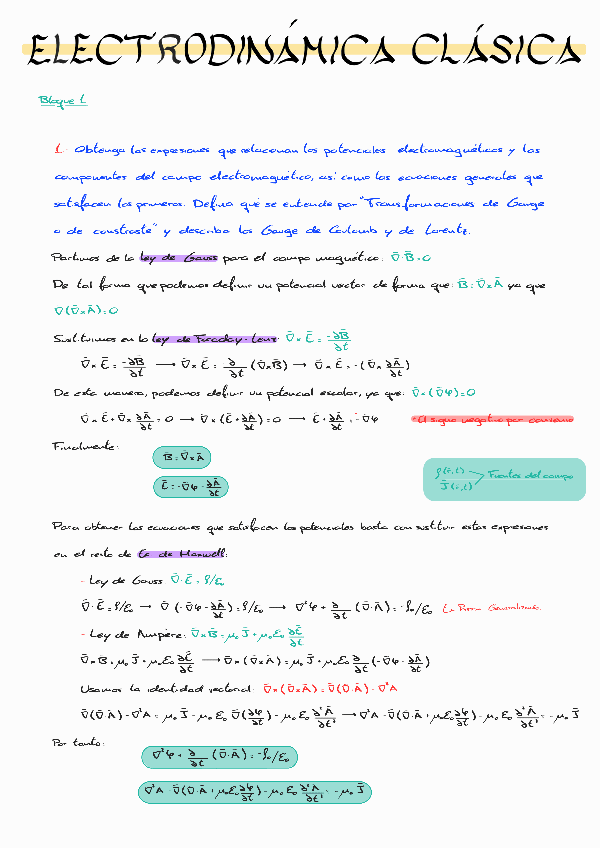 ELECTRODINÁMICA CLÁSICA
Bloque 1
1. Obtenga las expresiones que relacionan los potenciales electromagnéticos y las
componentes del campo electromagnético, así como las ecuaciones generales que
satisfacen los primeros. Defina qué se entiende por "Transformaciones de Gauge
o de constraste" y describa los Gauge de Coulomb y de Lorentz.
Partimos de la ley de Gauss para el campo magnético: ∇̄·B̄=0
De tal forma que podemos definir un potencial vector de forma que: B̄=∇̄×Ā ya que
∇̄(∇̄×Ā)=0
Sustituimos en la ley de Faraday-Lenz: ∇̄×Ē = -∂B̄/∂t
∇̄×Ē = -∂B̄/∂t → ∇̄×Ē = ∂/∂t (∇̄×B̄) → ∇̄×Ē = -(∇̄×∂Ā/∂t)
De esta manera, podemos definir un potencial escalar, ya que: ∇̄×(∇̄φ)=0
∇̄×Ē+∇̄×∂Ā/∂t=0 → ∇̄×(Ē+∂Ā/∂t)=0 → Ē+∂Ā/∂t=-∇̄φ *El signo negativo por convenio
Finalmente:
B̄=∇̄×Ā
Ē=-∇̄φ-∂Ā/∂t
ρ(r̄,t)
J̄(r̄,t) Fuentes del campo
Para obtener las ecuaciones que satisfacen los potenciales basta con sustituir estas expresiones
en el resto de Ec de Maxwell:
- Ley de Gauss ∇̄·Ē=ρ/ε₀
∇̄·Ē=ρ/ε₀ → ∇̄·(-∇̄φ-∂Ā/∂t)=ρ/ε₀ → ∇²φ+∂/∂t(∇̄·Ā)=-ρ/ε₀ Ec Poisson Generalizada
- Ley de Ampère: ∇̄×B̄=μ₀J̄+μ₀ε₀∂Ē/∂t
∇̄×B̄=μ₀J̄+μ₀ε₀∂Ē/∂t → ∇̄×(∇̄×Ā)=μ₀J̄+μ₀ε₀∂/∂t(-∇̄φ-∂Ā/∂t)
Usamos la identidad vectorial: ∇̄×(∇̄×Ā)=∇̄(∇̄·Ā)-∇²A
∇̄(∇̄·Ā)-∇²A=μ₀J̄-μ₀ε₀∇̄(∂φ/∂t)-μ₀ε₀∂²Ā/∂t² → ∇²A-∇̄(∇̄·Ā+μ₀ε₀∂φ/∂t)-μ₀ε₀∂²Ā/∂t²=-μ₀J̄
Por tanto:
∇²φ+∂/∂t(∇̄·Ā)=-ρ/ε₀
∇²A-∇̄(∇̄·Ā+μ₀ε₀∂φ/∂t)-μ₀ε₀∂²Ā/∂t²=-μ₀J̄